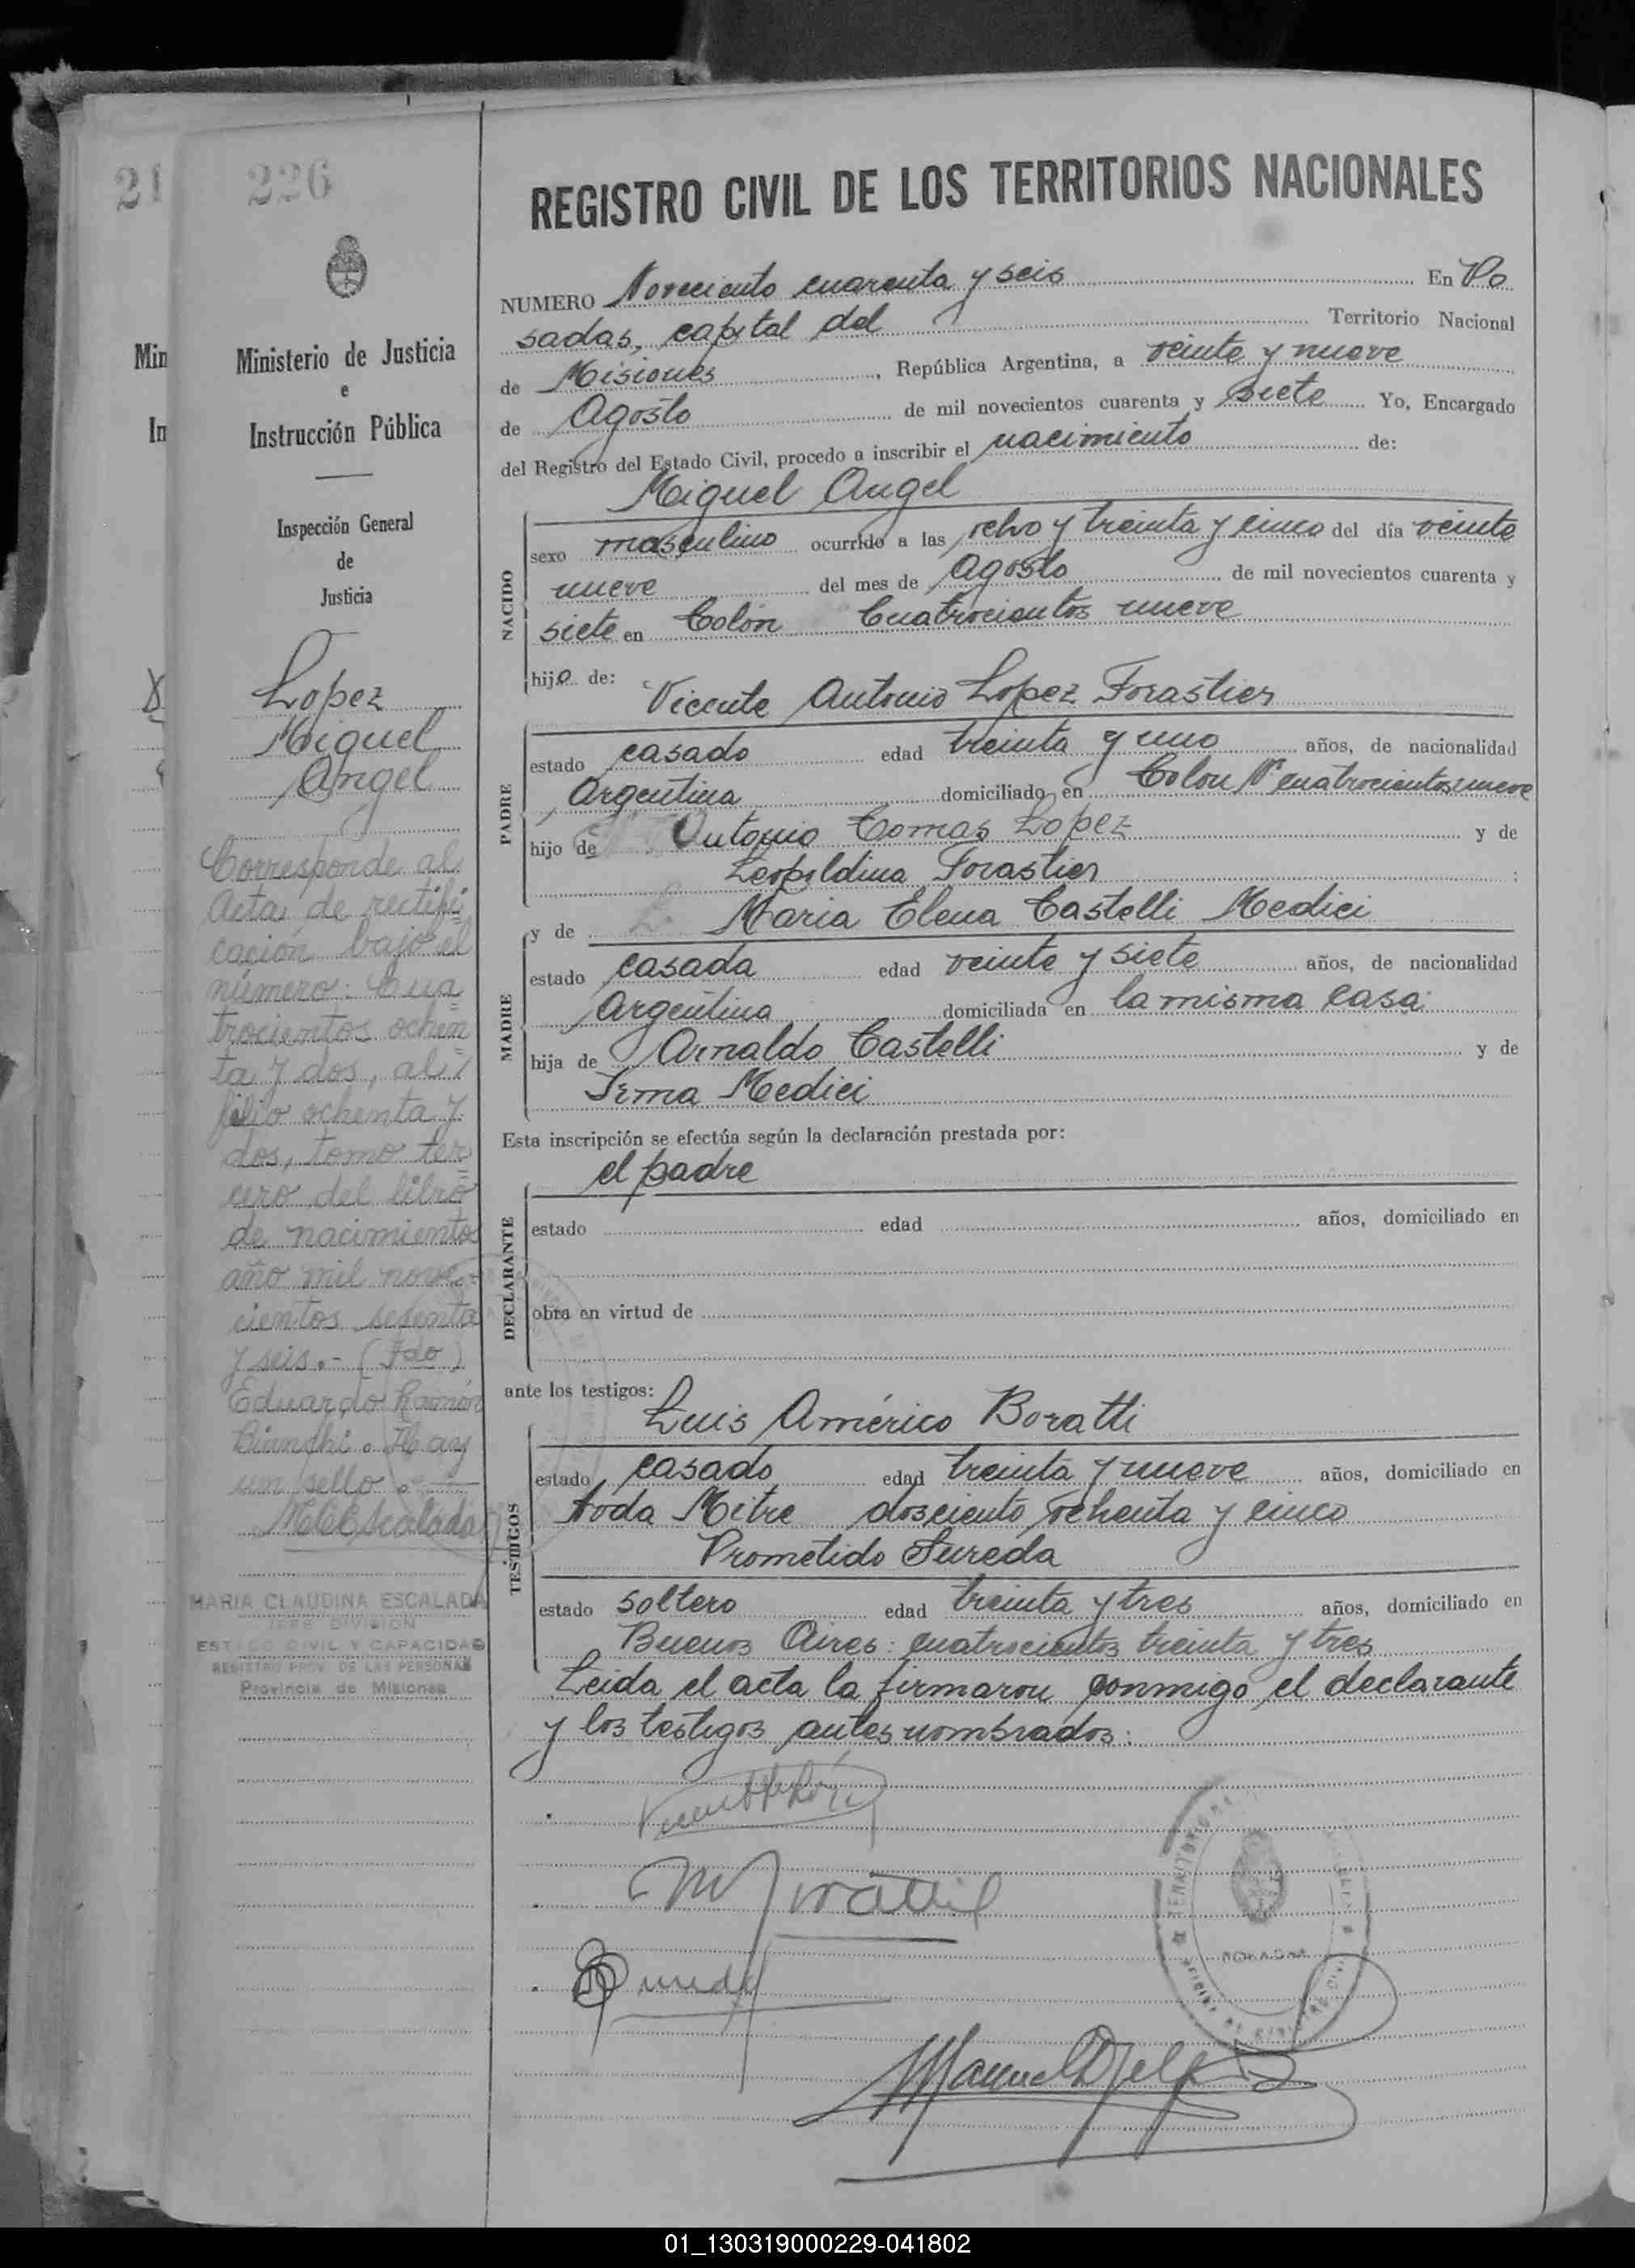 21
226
Min
In
Ministerio de Justicia
e
Instrucción Pública
Inspección General
de
Justicia
Lopez
Miguel
Angel
Corresponde al
Acta de rectifi
cación bajo el
número: Cua
trocientos ochen
ta y dos, al
folio ochenta y
dos, tomo ter
cero del libro
de nacimientos
año mil nove
cientos sesenta
y seis.- (Fdo)
Eduardo Ramón
Bianchi. Hay
un sello.-
MCEscalada
MARIA CLAUDINA ESCALADA
JEFE DIVISION
ESTADO CIVIL Y CAPACIDAD
REGISTRO PROV. DE LAS PERSONAS
Provincia de Misiones
REGISTRO CIVIL DE LOS TERRITORIOS NACIONALES
NUMERO Noveciento cuarenta y seis En Po
sadas, capital del Territorio Nacional
de Misiones, República Argentina, a veinte y nueve
de Agosto de mil novecientos cuarenta y siete Yo, Encargado
del Registro del Estado Civil, procedo a inscribir el nacimiento de:
Miguel Angel
NACIDO
sexo masculino ocurrido a las ocho y treinta y cinco del día veinte
nueve del mes de Agosto de mil novecientos cuarenta y
siete en Colón Cuatrocientos nueve
hijo de: Vicente Antonio Lopez Forastier
PADRE
estado casado edad treinta y uno años, de nacionalidad
Argentina domiciliado en Colon Nº cuatrocientos nueve
hijo de Antonio Tomas Lopez y de
Leopoldina Forastier ;
y de Maria Elena Castelli Medici
MADRE
estado casada edad veinte y siete años, de nacionalidad
Argentina domiciliada en la misma casa
hija de Arnaldo Castelli y de
Irma Medici
Esta inscripción se efectúa según la declaración prestada por:
el padre
DECLARANTE
estado edad años, domiciliado en
obra en virtud de
ante los testigos:
Luis Américo Boratti
TESTIGOS
estado casado edad treinta y nueve años, domiciliado en
Avda Mitre dosciento ochenta y cinco
Prometido Sureda
estado soltero edad treinta y tres años, domiciliado en
Buenos Aires: cuatrocientos treinta y tres
Leida el acta la firmaron conmigo el declarante
y los testigos antes nombrados:
POSADAS
01_130319000229-041802